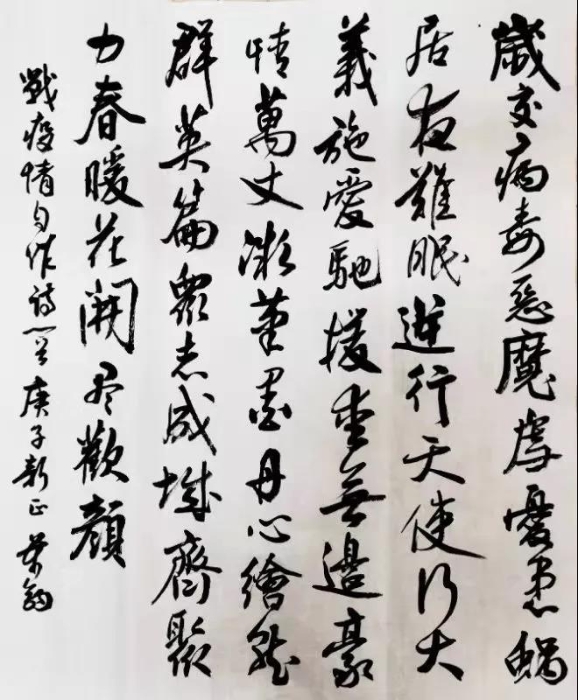 歲交病毒惡魔虐憂患蝸
居夜難眠逆行天使行大
義施愛馳援無邊豪
情萬丈筆墨丹心繪就
群英篇眾志成城齊聚
力春暖花開尽歡顏
戰疫情自作詩一首庚子新正